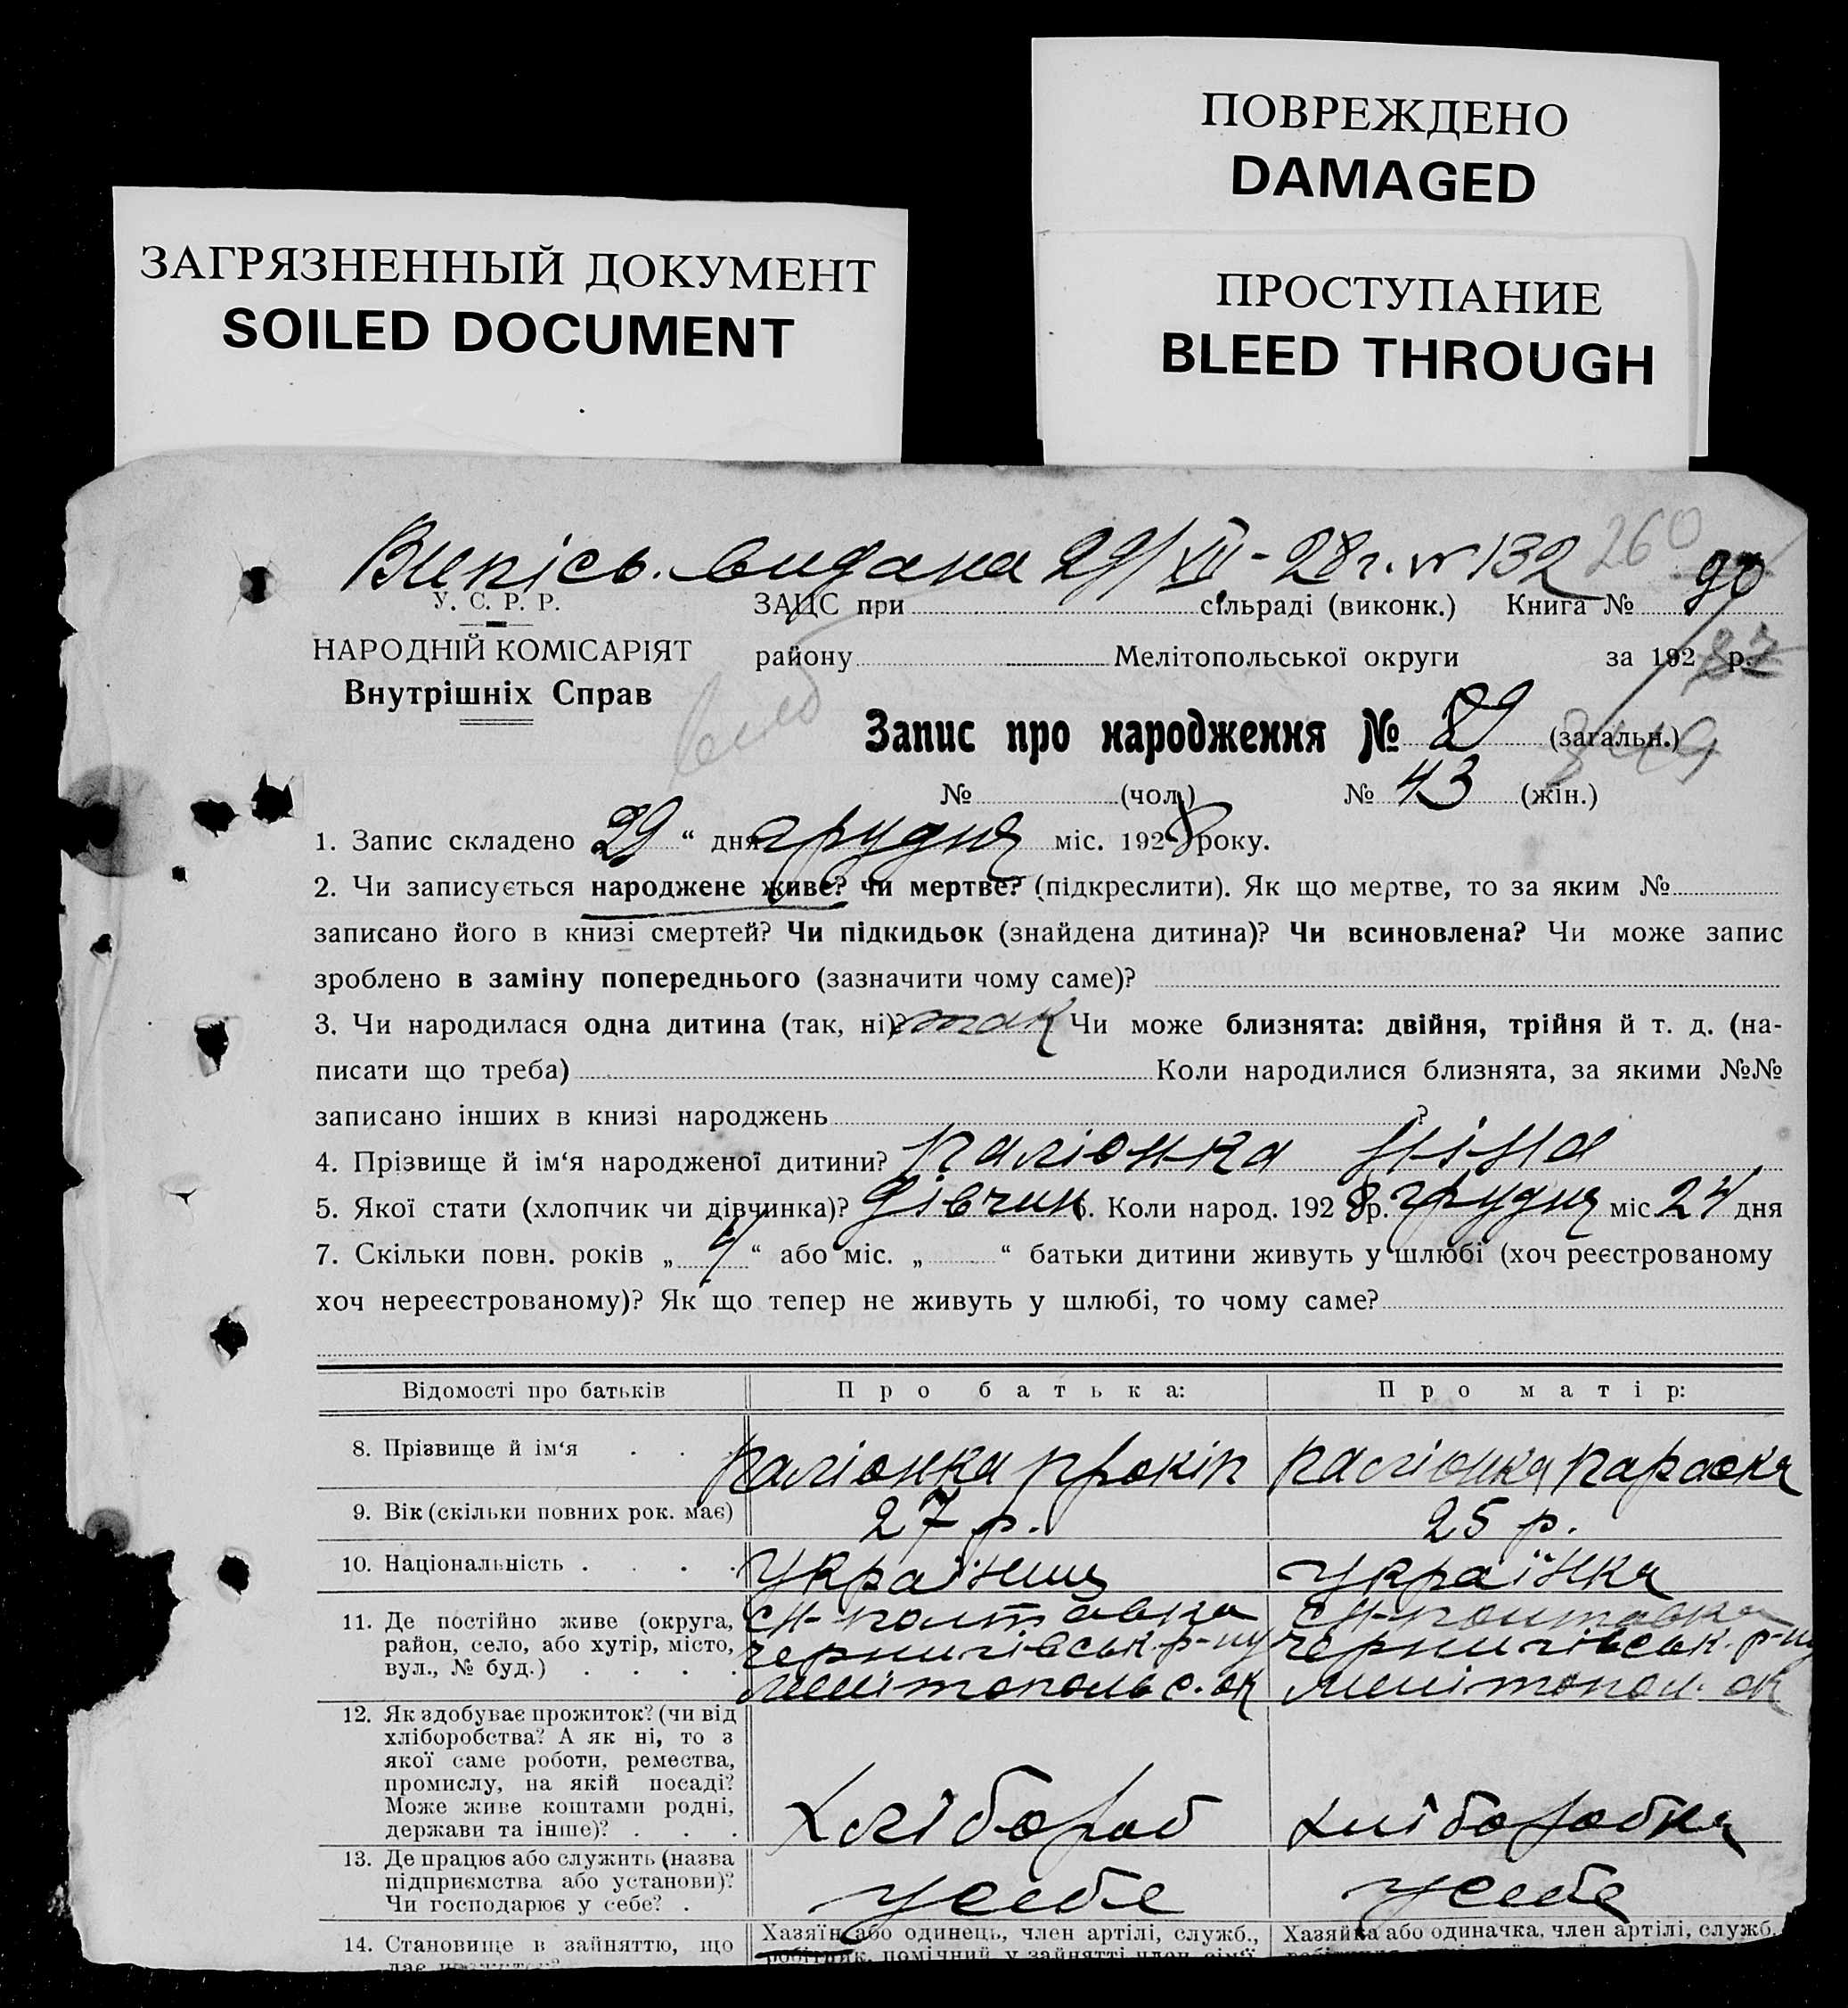 ПОВРЕЖДЕНО
DAMAGED
ЗАГРЯЗНЕННЫЙ ДОКУМЕНТ
SOILED DOCUMENT
ПРОСТУПАНИЕ
BLEED THROUGH
Випісь. видана 29/XII-28 г. № 132 260 90
У. С. Р. Р.
НАРОДНІЙ КОМІСАРІЯТ
Внутрішніх Справ
ЗАЦС при сільраді (виконк.) Книга №
району Мелітопольської округи за 192 р.
Запис про народження № 89 (загальн.)
№ (чол.) № 43 (жін.)
1. Запис складено 29 “ дня грудня міс. 1928 року.
2. Чи записується народжене живе? чи мертве? (підкреслити). Як що мертве, то за яким №
записано його в книзі смертей? Чи підкидьок (знайдена дитина)? Чи всиновлена? Чи може запис
зроблено в заміну попереднього (зазначити чому саме)?
3. Чи народилася одна дитина (так, ні)? так Чи може близнята: двійня, трійня й т. д. (на-
писати що треба) Коли народилися близнята, за якими №№
записано інших в книзі народжень ?
4. Прізвище й ім‘я народженої дитини? Паліонка Ніна
5. Якої стати (хлопчик чи дівчинка)? Дівчин 6. Коли народ. 1928 р. грудня міс 24 дня
7. Скільки повн. років „ 4 “ або міс. „ “ батьки дитини живуть у шлюбі (хоч реєстрованому
хоч нереєстрованому)? Як що тепер не живуть у шлюбі, то чому саме?
Відомості про батьків Про батька: Про матір:
8. Прізвище й ім‘я Паліонка Прокіп Паліонка Параска
9. Вік (скільки повних рок. має) 27 р. 25 р.
10. Національність Українец Українка
11. Де постійно живе (округа, район, село, або хутір, місто, вул., № буд.)
Н-Полтавка
Чернигівськ. р-ну
Мелітопольс. ок
Н-Полтавка
Чернигівськ. р-ну
Мелітопол. ок
12. Як здобуває прожиток? (чи від
хліборобства? А як ні, то з
якої саме роботи, ремества,
промислу, на якій посаді?
Може живе коштами родні,
держави та інше)? Хлібороб Хліборобка
13. Де працює або служить (назва
підприємства або установи)?
Чи господарює у себе? У себе У себе
14. Становище в зайняттю, що
Хазяїн або одинець, член артілі, служб.,
робітник, помічний у зайнятті член сім‘ї
Хазяйка або одиначка, член артілі, служб.